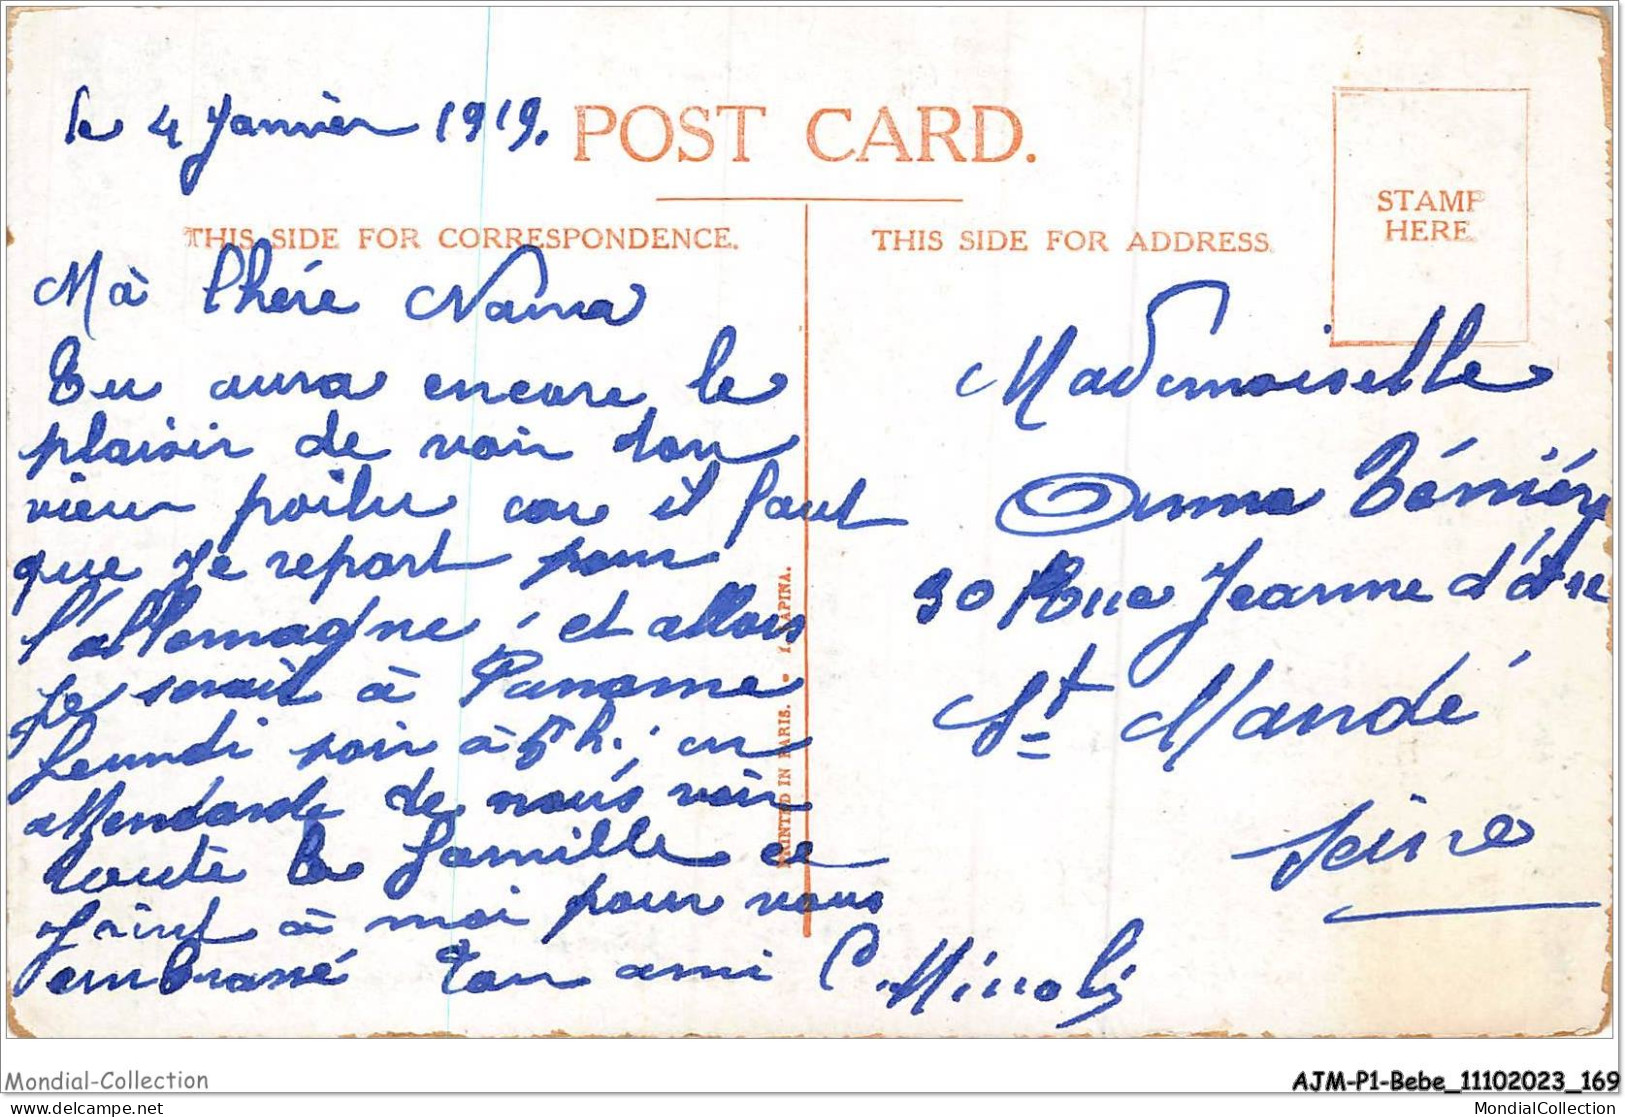 le 4 Janvièr 1919.
POST CARD.
STAMP
HERE.
THIS SIDE FOR CORRESPONDENCE.
THIS SIDE FOR ADDRESS.
Mà Chére Nana
Tu aura encore le
plaisir de voir ton
vieux poilu car il faut
que je repart pour
l'allemagne, et allors
je serait à Paname
Jeundi soir à 5h., en
attendande de nous voir
toute la famille ce
joint à moi pour vous
embrassé Ton ami C. Minoli
PRINTED IN PARIS. - I. LAPINA.
Mademoiselle
Anna Ténièry
30 Rue Jeanne d'Arc
St Mandé
Seine
Mondial-Collection
AJM-P1-Bebe_11102023_169
www.delcampe.net
MondialCollection